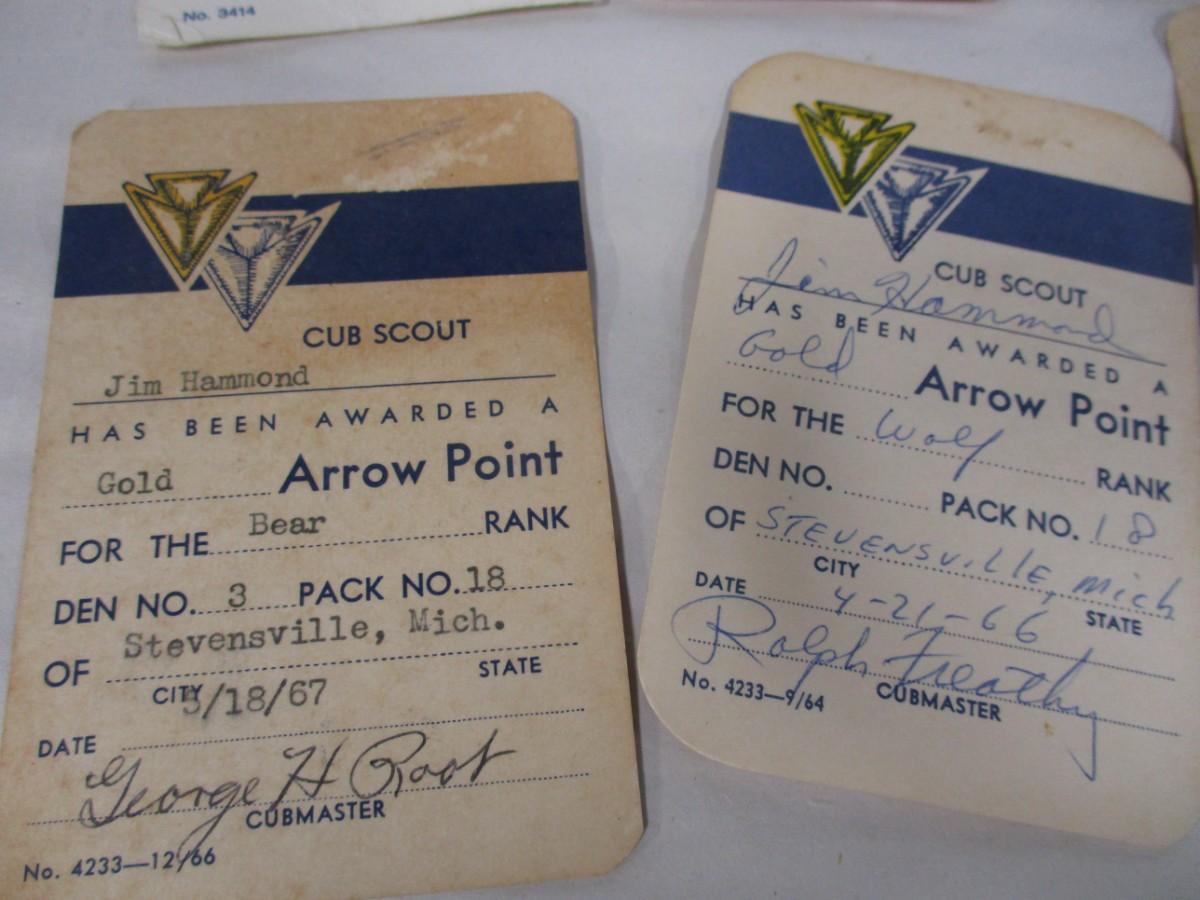 No. 3414
CUB SCOUT
Jim Hammond
HAS BEEN AWARDED A
Gold Arrow Point
FOR THE Bear RANK
DEN NO. 3 PACK NO. 18
OF Stevensville, Mich.
CITY STATE
DATE /18/67
George H Root
CUBMASTER
No. 4233—12/66
CUB SCOUT
Jim Hammond
HAS BEEN AWARDED A
Gold Arrow Point
FOR THE Wolf RANK
DEN NO. PACK NO. 18
OF STEVENSVILLE, Mich
CITY STATE
DATE 4-21-66
Ralph
CUBMASTER
No. 4233—9/64